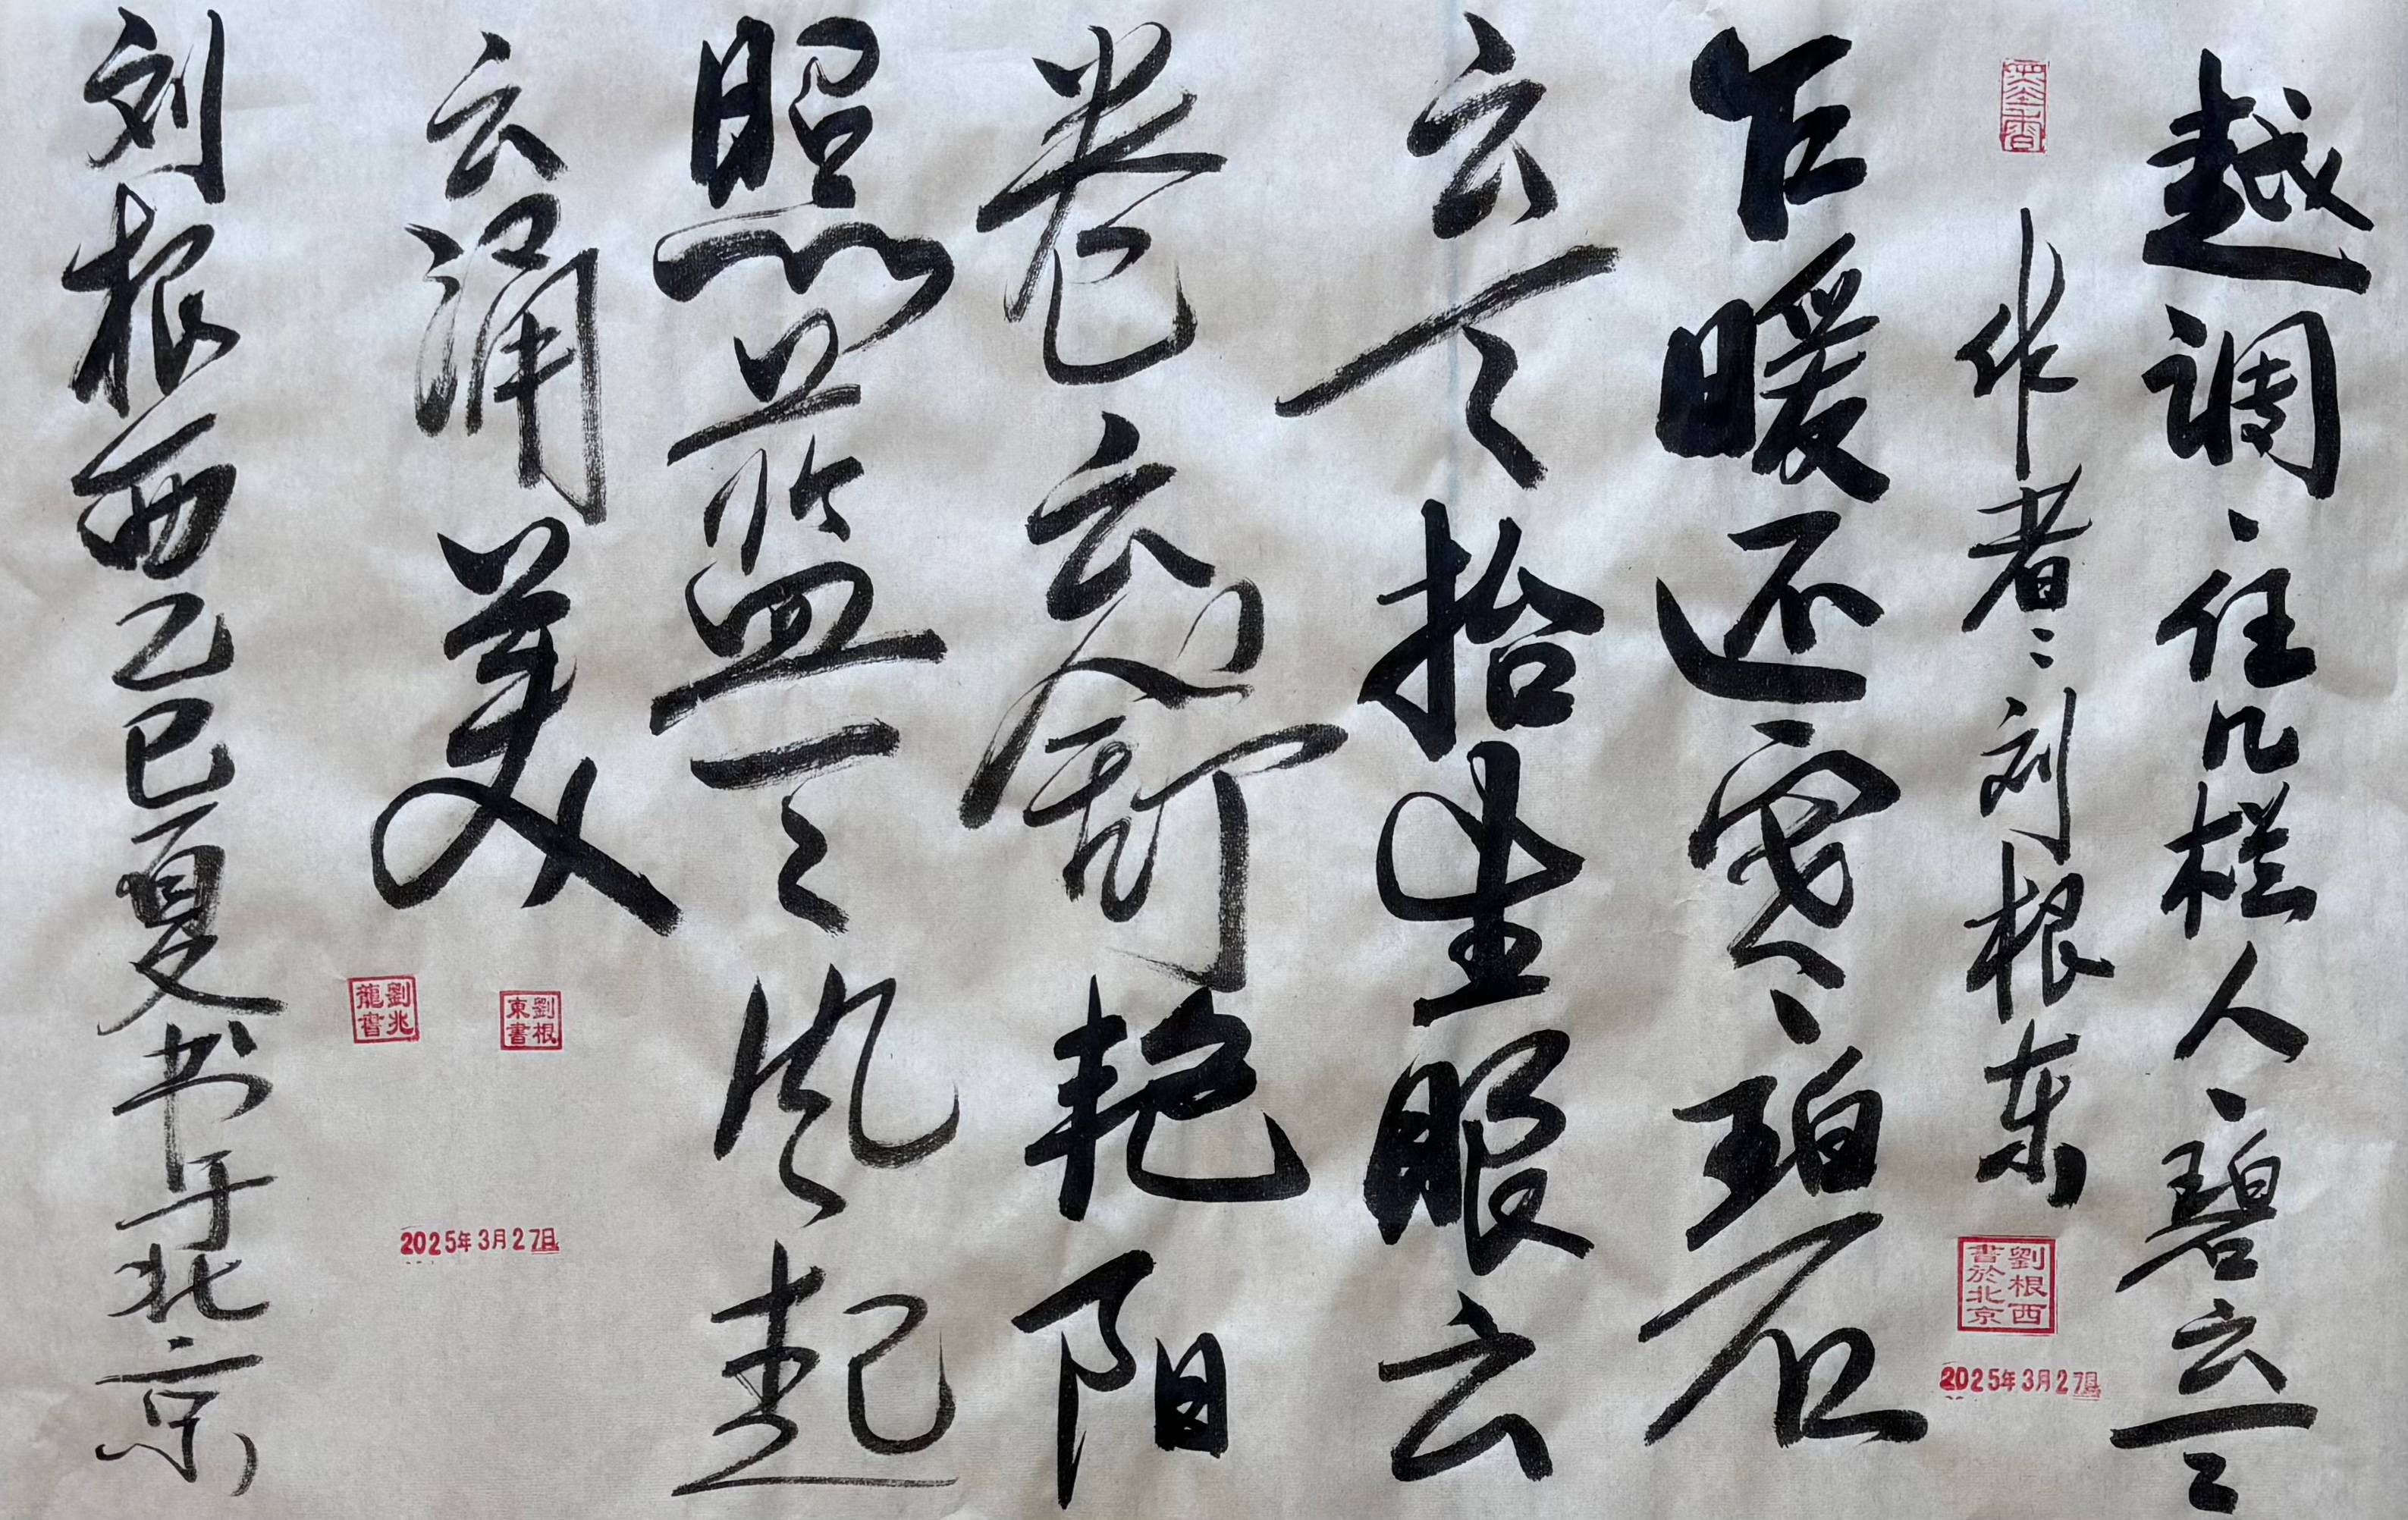 越调·凭栏人·碧云天
作者:刘根东
劉根西書於北京
2025年3月27日
乍暖还寒·碧
云天抬望眼云
卷云舒艳阳
照蓝天风起
云涌美
劉根東書
劉兆龍書
2025年3月27日
刘根西乙巳夏书于北京